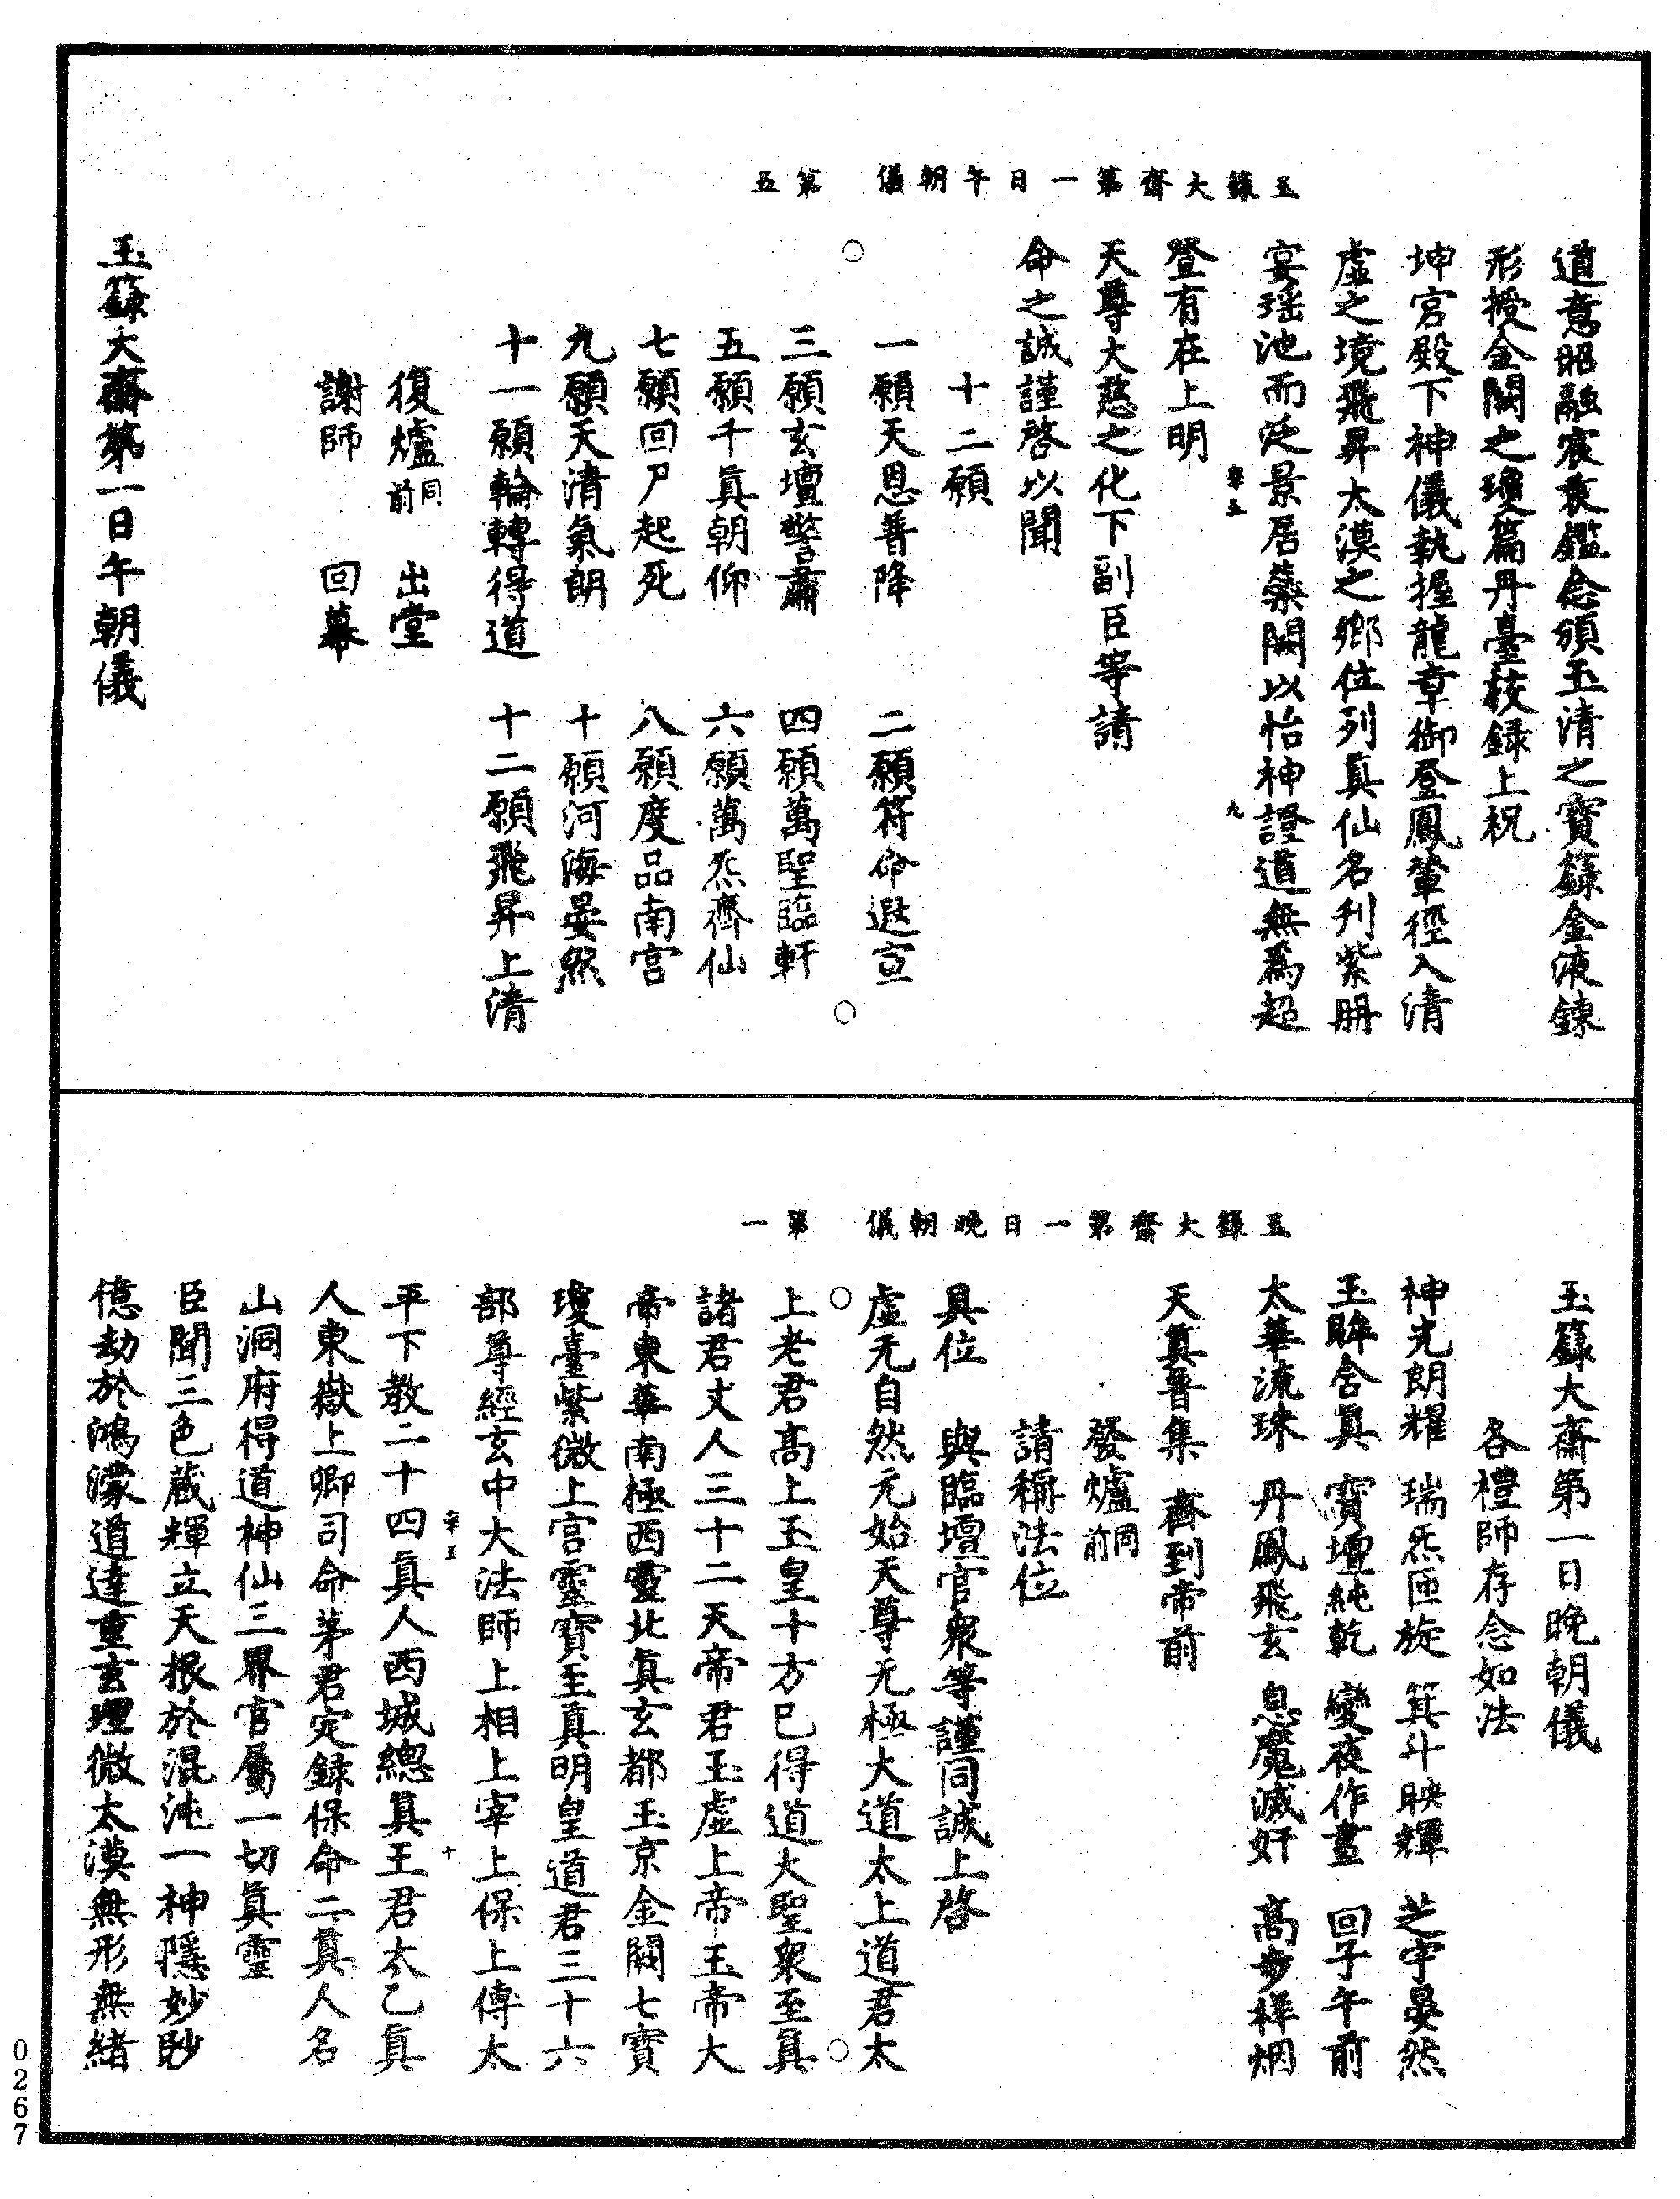 玉籙大齋第一日午朝儀　第五
道意昭融宸衷鑑念頒玉清之寶籙金液鍊
形授金闕之瓊篇丹臺校録上祝
坤宮殿下神儀執握龍章御登鳳輦徑入清
虛之境飛昇太漠之鄉位列真仙名刋紫册
宴瑶池而泛景居蘂闕以怡神證道無爲超
宰五　九
登有在上明
天尊大慈之化下副臣等請
命之誠謹啓以聞
十二願
一願天恩普降　二願符命遐宣
三願玄壇警肅　四願萬聖臨軒
五願千真朝仰　六願萬炁齊仙
七願回尸起死　八願度品南宮
九願天清氣朗　十願河海晏然
十一願輪轉得道　十二願飛昇上清
復爐同前　出堂
謝師　回幕
玉籙大齋第一日午朝儀
玉籙大齋第一日晚朝儀　第一
玉籙大齋第一日晚朝儀
各禮師存念如法
神光朗耀　瑞炁匝旋　箕斗映輝　芝宇晏然
玉眸含眞　寶壇純乾　變夜作晝　回子午前
太華流珠　丹鳳飛玄　息魔滅奸　高步祥烟
天眞普集　齊到帝前
發爐同前
請稱法位
具位　與臨壇官衆等謹同誠上啓
虛无自然元始天尊无極大道太上道君太
上老君高上玉皇十方已得道大聖衆至真
諸君丈人三十二天帝君玉虛上帝玉帝大
帝東華南極西靈北眞玄都玉京金闕七寶
瓊臺紫微上宮靈寶至真明皇道君三十六
部尊經玄中大法師上相上宰上保上傅太
平下教二十四真人西城總真王君太乙真
宰五　十
人東嶽上卿司命茅君定録保命二真人名
山洞府得道神仙三界官屬一切眞靈
臣聞三色蔵輝立天根於混沌一神隱妙眇
億劫於鴻濛道達重玄理微太漠無形無緒
0267